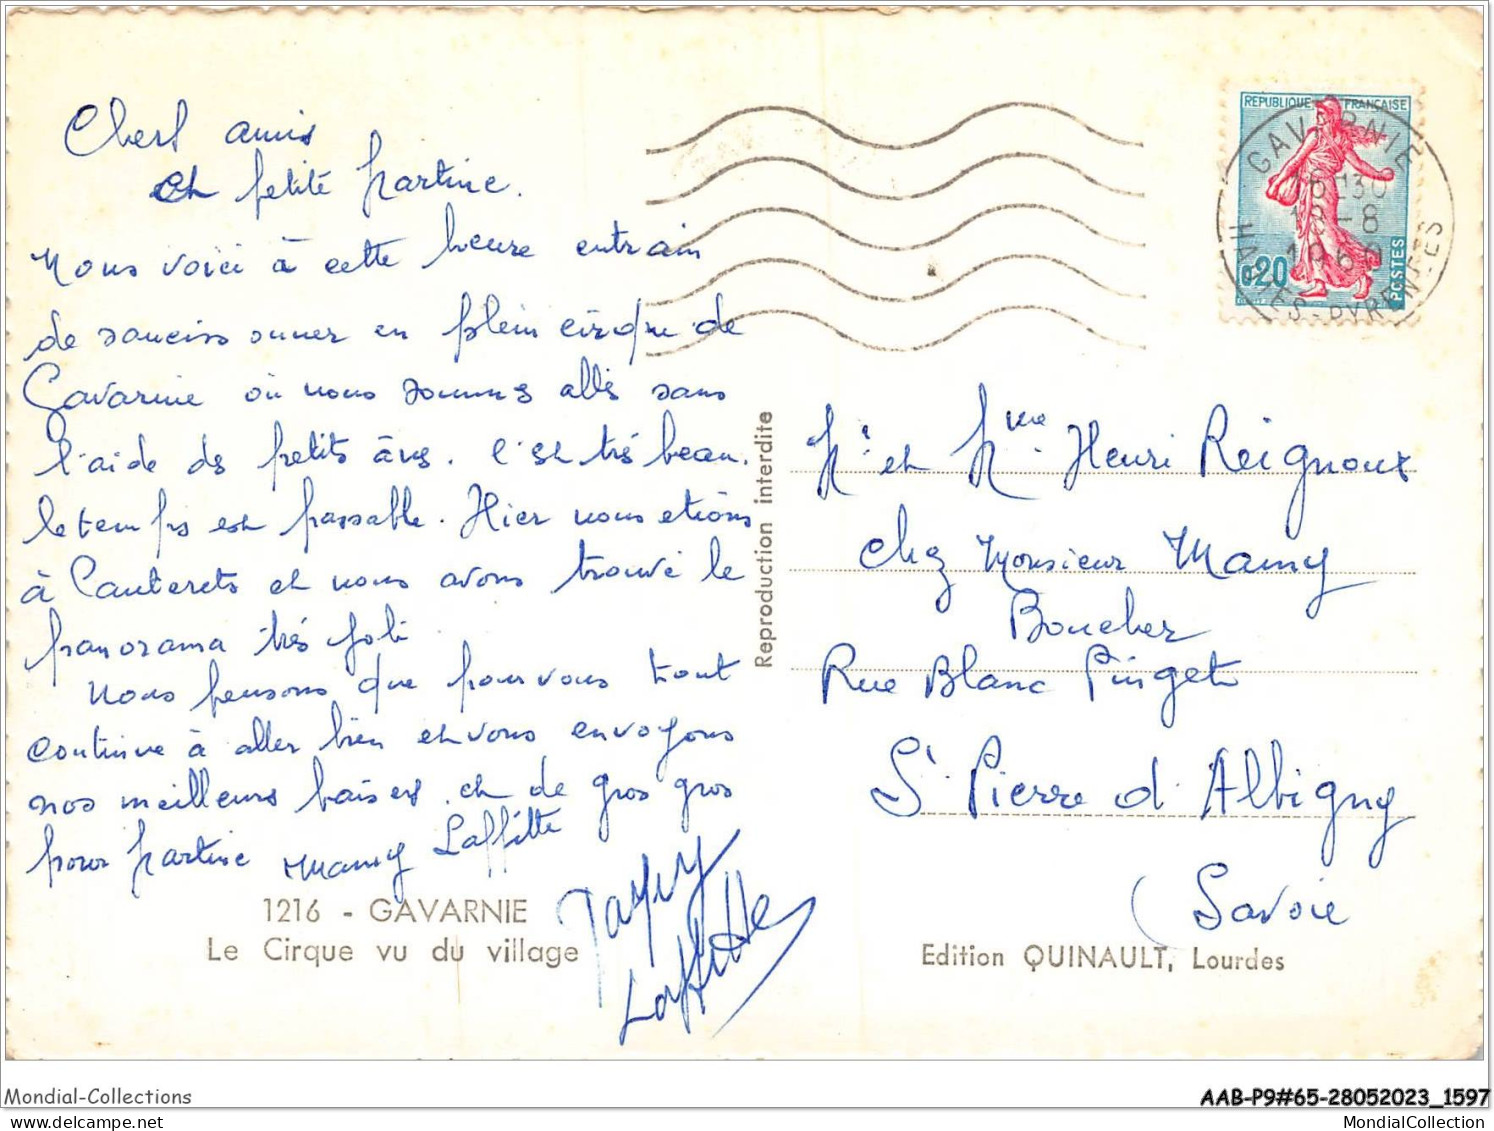 Chers amis
et petite Martine.
Nous voici à cette heure entrain
de saucissonner en plein cirque de
Gavarnie où nous sommes allés sans
l'aide des petits ânes. C'est très beau.
le temps est passable. Hier nous etions
à Cauterets et nous avons trouvé le
panorama très joli
Nous pensons que pour vous tout
continue à aller bien et vous envoyons
nos meilleurs baisers et de gros gros
pour Martine Mamy Laffitte
Papy
Laffitte
1216 - GAVARNIE
Le Cirque vu du village
Reproduction interdite
REPUBLIQUE FRANÇAISE
0,20
POSTES
GAVARNIE
18-8
HAUTES-PYRENEES
Mr et Mme Henri Reignoux
Chez Monsieur Mamy
Boucher
Rue Blanc Pinget
St Pierre d'Albigny
(Savoie
Edition QUINAULT, Lourdes
Mondial-Collections
AAB-P9#65-28052023_1597
MondialCollection